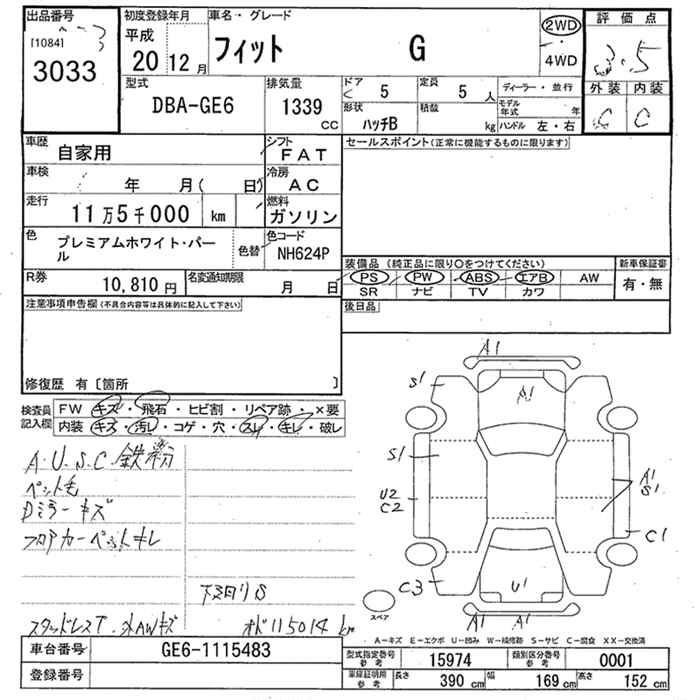 出品番号
[1084]
3033
初度登録年月
平成
20 12 月
車名・グレード
フィット G
2WD
4WD
評価点
3.5
外装 内装
C C
型式
DBA-GE6
排気量
1339
CC
ドア
5
定員
5 人
形状
ハッチB
積載
kg
ディーラー・並行
モデル年式 年
ハンドル 左・右
車歴
自家用
シフト
FAT
車検
年 月( 日)
冷房
AC
走行
11万5千000 km
燃料
ガソリン
色
プレミアムホワイト・パール
色替
色コード
NH624P
R券
10,810 円
名変通知期限
月 日
セールスポイント(正常に機能するものに限ります)
装備品 (純正品に限り○をつけてください)
PS PW ABS エアB AW
SR ナビ TV カワ
新車保証書
有・無
後日品
注意事項申告欄(不具合内容等は具体的に記入して下さい)
修復歴 有〔箇所 〕
検査員記入欄
FW キズ・飛石・ヒビ割・リペア跡・×要
内装 キズ・汚レ・コゲ・穴・スレ・キレ・破レ
A.U.S.C.鉄粉
ペット毛
Dミラーキズ
フロアカーペットキレ
下廻りS
スタッドレスT.外AWキズ
オド115014km
A1
S1
A1
S1
U2
C2
A1
S1
C1
C3
U1
A1 A1
スペア
A-キズ E-エクボ U-凹み W-補修跡 S-サビ C-腐食 XX-交換済
車台番号
GE6-1115483
登録番号
型式指定番号
参考
15974
類別区分番号
参考
0001
車庫証明用
参考
長さ 390 cm
幅 169 cm
高さ 152 cm